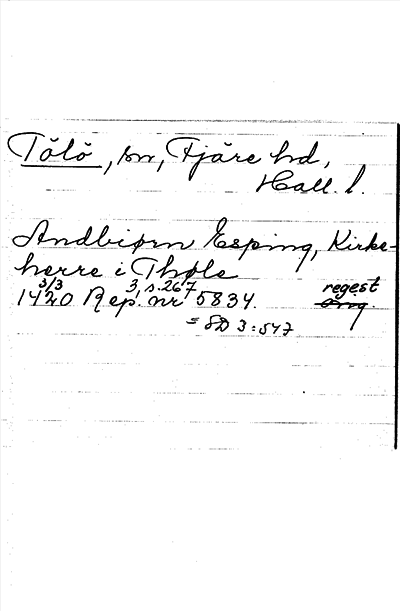 Tölö, sn, Fjäre hd,
Hall. l.
Andbiørn Esping, Kirke-
herre i Thøle
3/3 3, s. 267 regest
1420 Rep. nr 5834. orig.
= SD 3:547